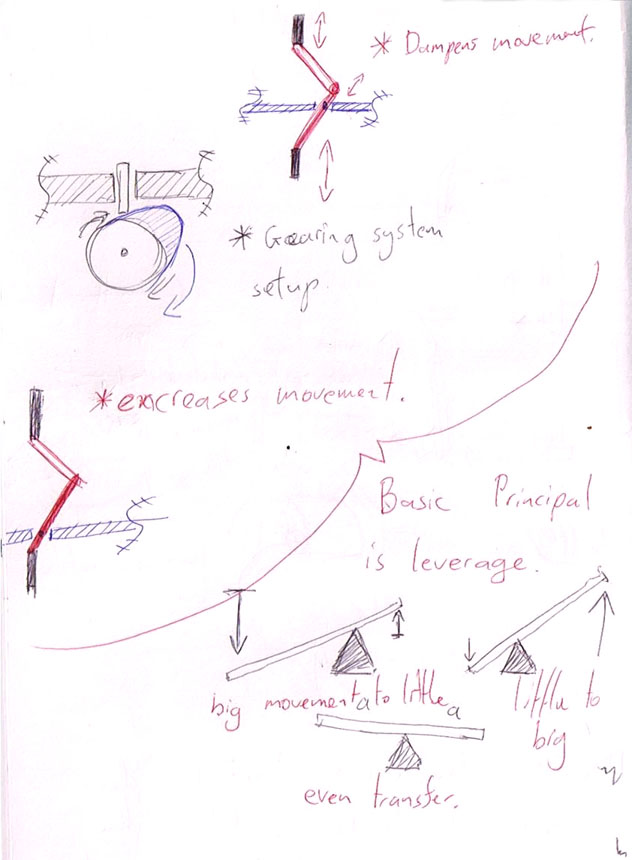 * Dampens movement.
* Gearing system
setup.
* encreases movement.
Basic Principal
is leverage.
big movement to little
little to
big
even transfer.